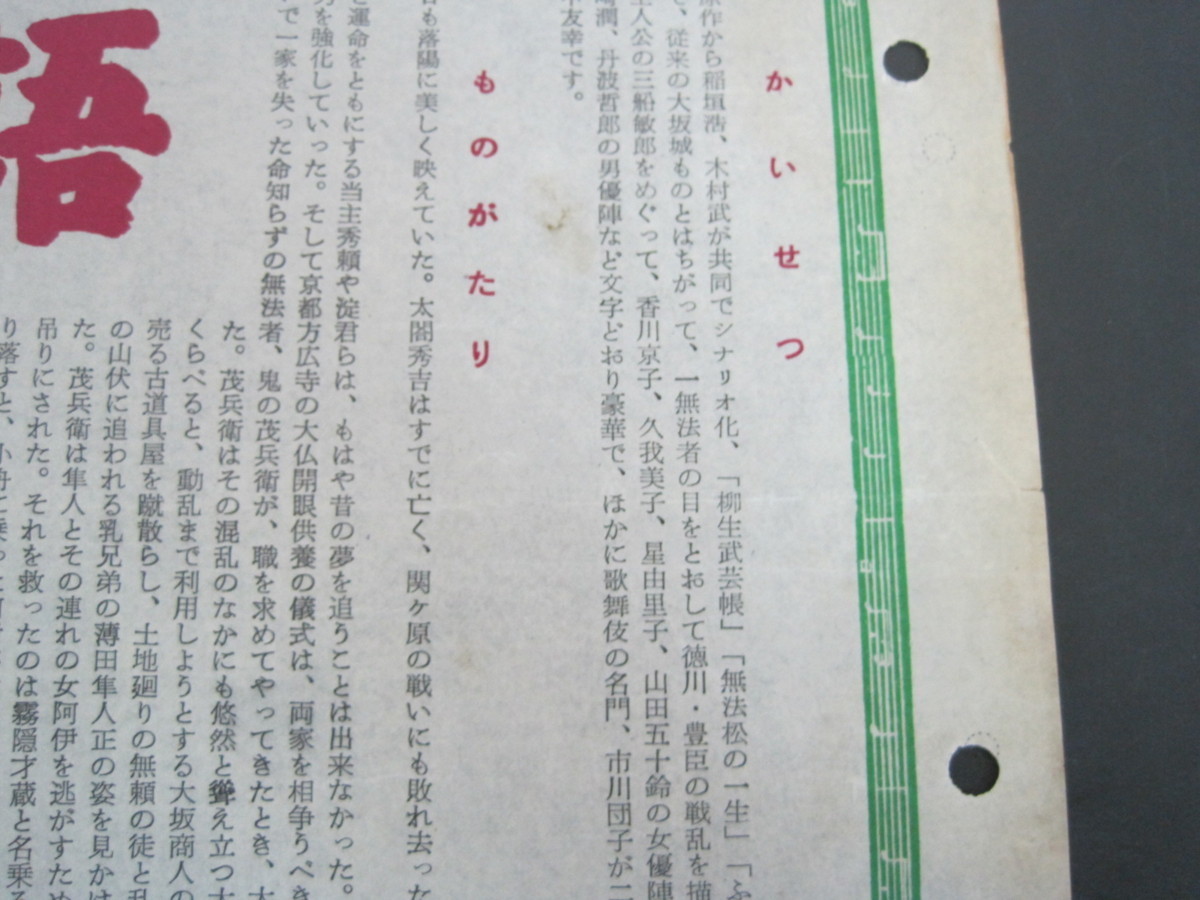 かいせつ
原作から稲垣浩、木村武が共同でシナリオ化、「柳生武芸帳」「無法松の一生」「ふ
従来の大坂城ものとはちがって、一無法者の目をとおして徳川・豊臣の戦乱を描
主人公の三船敏郎をめぐって、香川京子、久我美子、星由里子、山田五十鈴の女優陣
潤、丹波哲郎の男優陣など文字どおり豪華で、ほかに歌舞伎の名門、市川団子が二
友幸です。
ものがたり
も落陽に美しく映えていた。太閤秀吉はすでに亡く、関ヶ原の戦いにも敗れ去った
運命をともにする当主秀頼や淀君らは、もはや昔の夢を追うことは出来なかった。
を強化していった。そして京都方広寺の大仏開眼供養の儀式は、両家を相争うべき
で一家を失った命知らずの無法者、鬼の茂兵衛が、職を求めてやってきたとき、大
た。茂兵衛はその混乱のなかにも悠然と聳え立つ大
くらべると、動乱まで利用しようとする大坂商人の
売る古道具屋を蹴散らし、土地廻りの無頼の徒と乱
の山伏に追われる乳兄弟の薄田隼人正の姿を見かけ
た。茂兵衛は隼人とその連れの女阿伊を逃がすため
吊りにされた。それを救ったのは霧隠才蔵と名乗る
り落すと、小舟に乗った
語